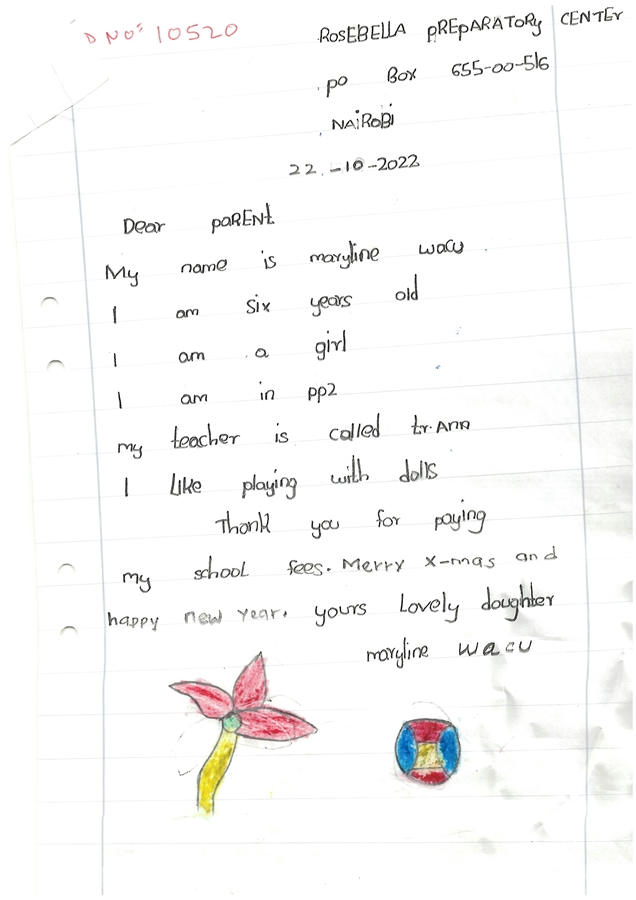 D NO: 10520
ROSEBELLA PREPARATORY CENTER
PO Box 655-00-516
NAiROBi
22.-10-2022
Dear paRENt
My name is maryline wacu
I am Six years old
I am a girl
I am in pp2
my teacher is called tr. Ann
I Like playing with dolls
Thank you for paying
my school fees. Merry x-mas and
happy new year. yours Lovely doughter
maryline wacu